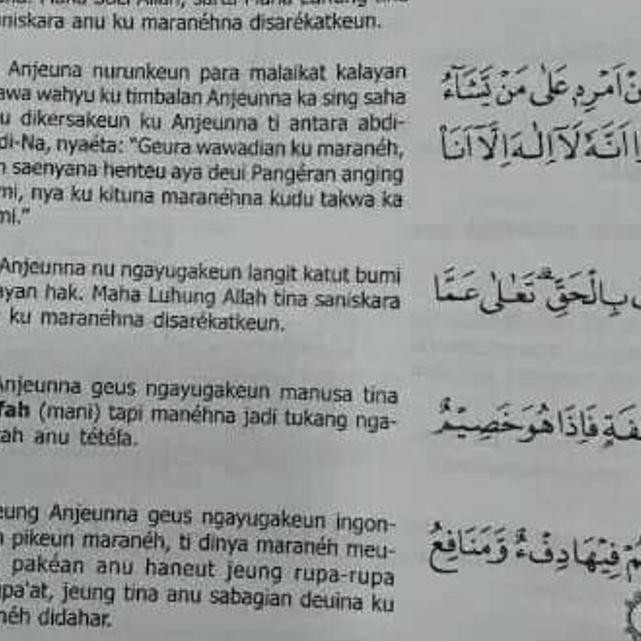 niskara anu ku maranéhna disarékatkeun.
Anjeuna nurunkeun para malaikat kalayan
awa wahyu ku timbalan Anjeunna ka sing saha
u dikersakeun ku Anjeunna ti antara abdi-
di-Na, nyaéta: "Geura wawadian ku maranéh,
n saenyana henteu aya deui Pangéran anging
mi, nya ku kituna maranéhna kudu takwa ka
mi."
Anjeunna nu ngayugakeun langit katut bumi
ayan hak. Maha Luhung Allah tina saniskara
ku maranéhna disarékatkeun.
Anjeunna geus ngayugakeun manusa tina
fah (mani) tapi manéhna jadi tukang nga-
tah anu tétéla.
eung Anjeunna geus ngayugakeun ingon-
n pikeun maranéh, ti dinya maranéh meu-
pakéan anu haneut jeung rupa-rupa
pa'at, jeung tina anu sabagian deuina ku
néh didahar.
مِنْ اَمْرِهٖ عَلٰى مَنْ يَّشَآءُ
اَنَّهٗ لَآ اِلٰهَ اِلَّآ اَنَا۠
بِالْحَقِّۗ تَعٰلٰى عَمَّا
فَةٍ فَاِذَا هُوَ خَصِيْمٌ
مْ فِيْهَا دِفْءٌ وَّمَنَافِعُ